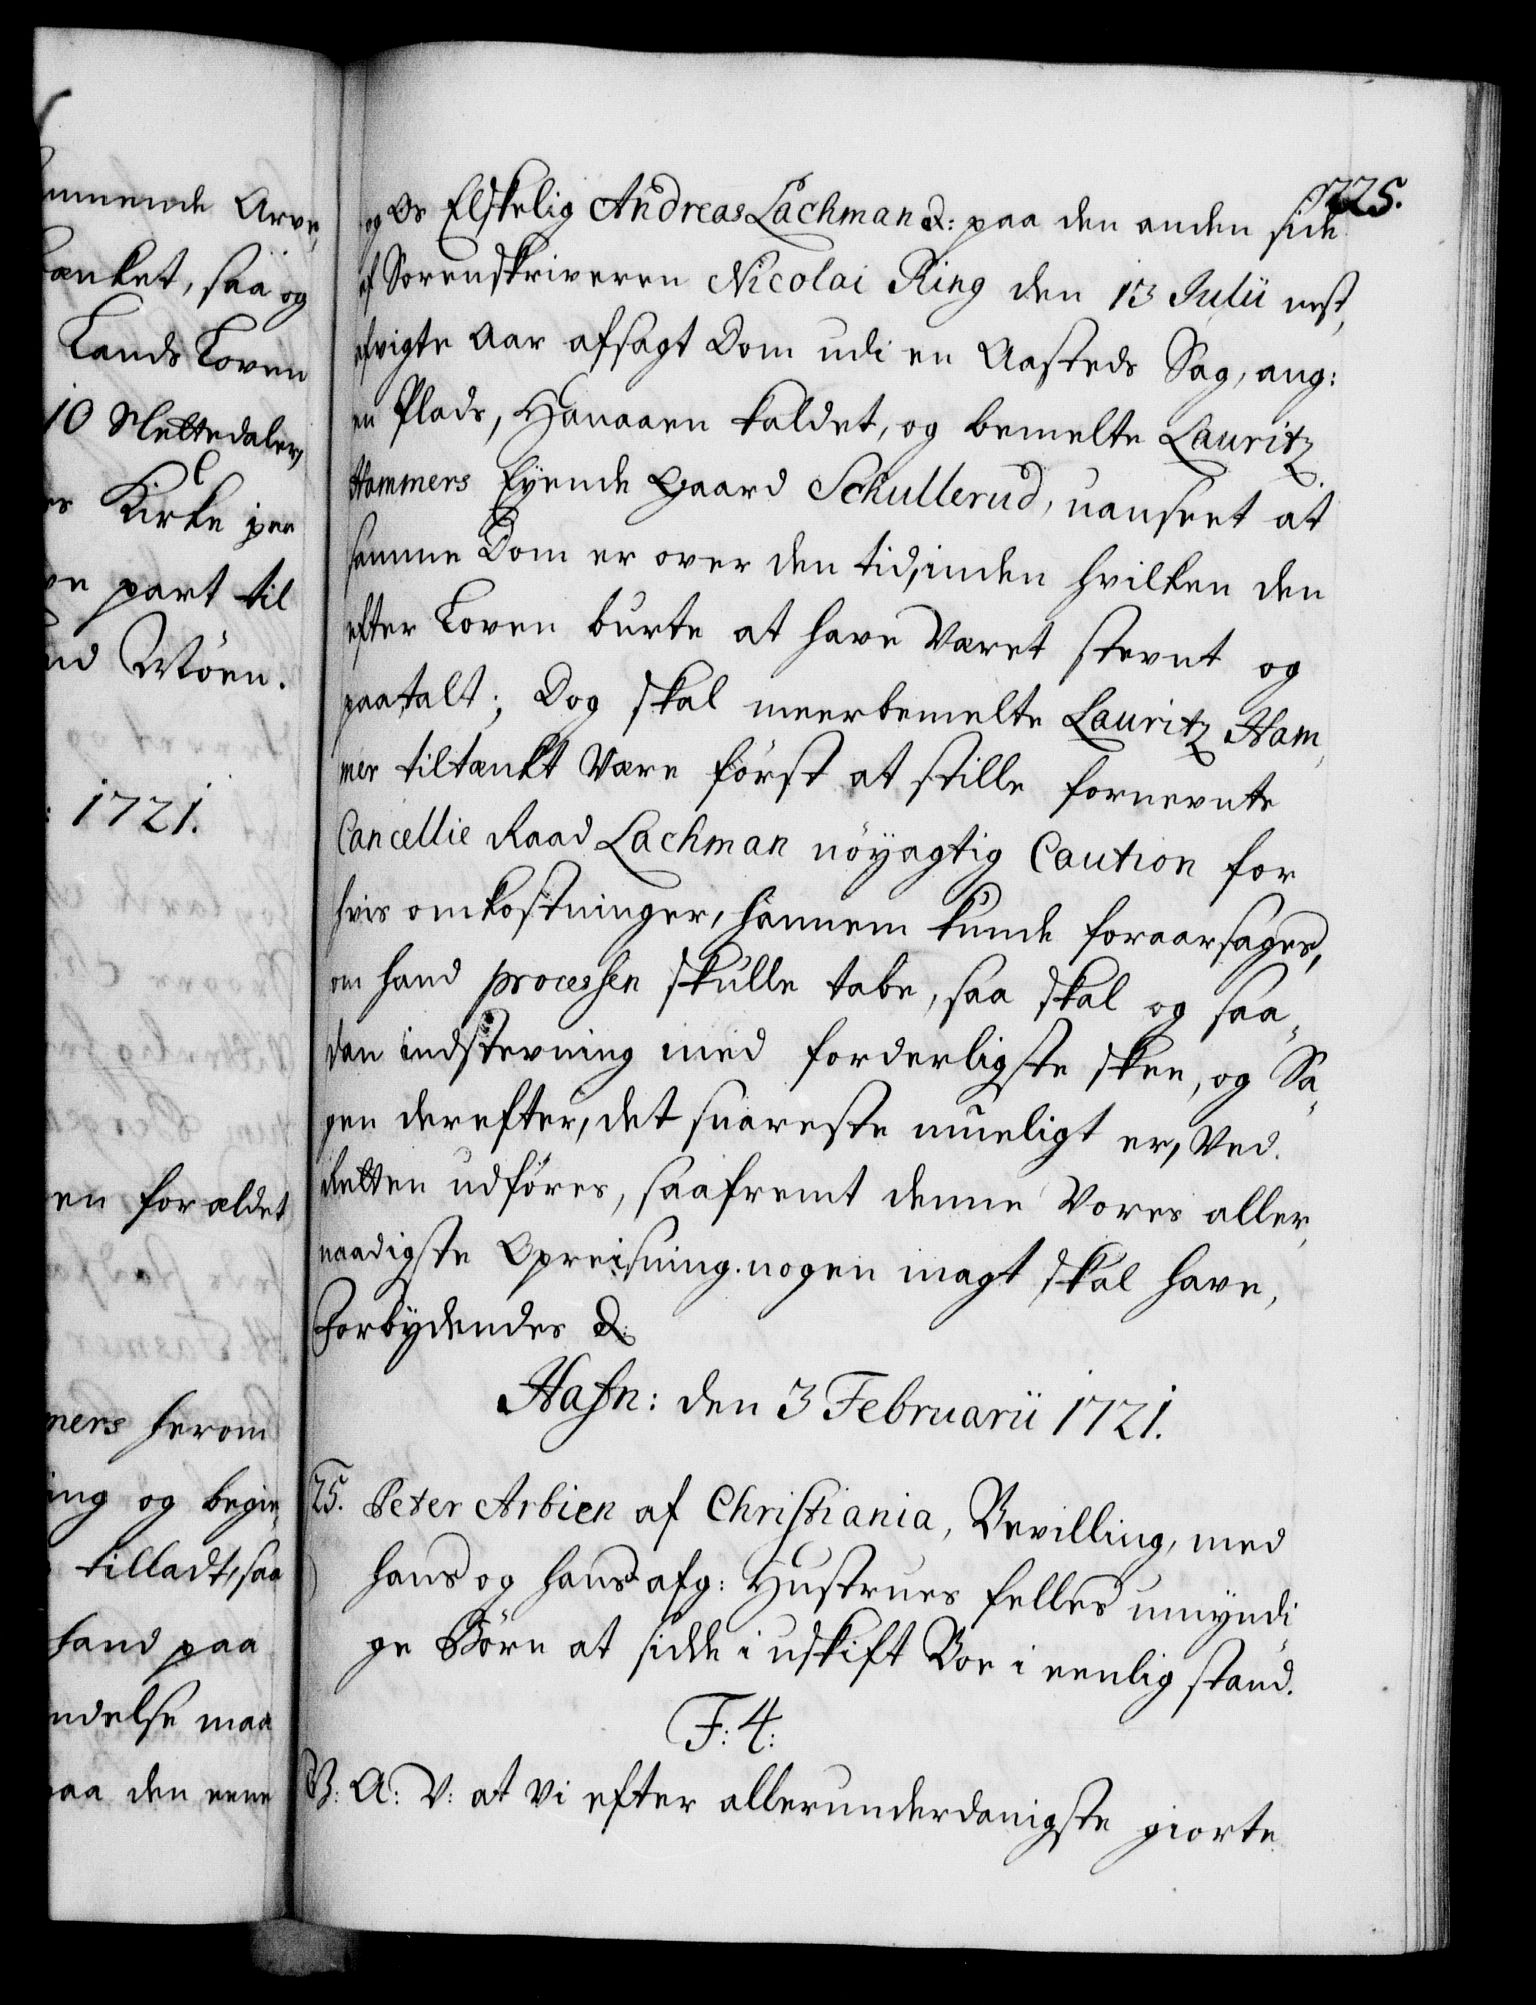 mmende Arve,
tanket, saa og
Lands Loven
10 Slettedaler,
es Kirke jen
ve part til
nd Möen.
: 1721.
en forældet
mers herom
ing og begie,
tilladt, saa
hand paa
ndelse maa
paa den eene
225.
og Os Elskelig Andreas Lachman &: paa den anden side
af Sorenskriveren Nicolai Ring den 13 Julii nest,
afvigte Aar afsagt Dom udi en Aasteds Sag, ang:
en Plads, Hanaaen kaldet, og bemelte Lauritz
Hammers Eyende Gaard Schullerud, uanseet at
samme Dom er over den tid, inden hvilken den
efter Loven burte at have Været stevnt og
paatalt; Dog skal meerbemelte Lauritz Ham,
mer tiltænkt Være först at stille fornevnte
Cancellie Raad Lachman nöyagtig Caution for
hvis omkostninger, hannem kunde foraarsages,
om hand processen skulle tabe, saa skal og saa,,
dan indstevning med forderligste skee, og Sa,,
gen derefter, det snareste mueligt er, Ved.
Retten udföres, saafremt denne Vores aller,
naadigste Opreisning nogen magt skal have,
Forbydendes &:
Hafn: den 3 Februarii 1721.
25. Peter Arbien af Christiania, Bevilling, med
hans og hans afg: Hustrues felles umyndi
ge Börn at sidde i uskift Boe i eenlig stand.
F: 4:
G: A: V: at Vi efter allerunderdanigste giorte